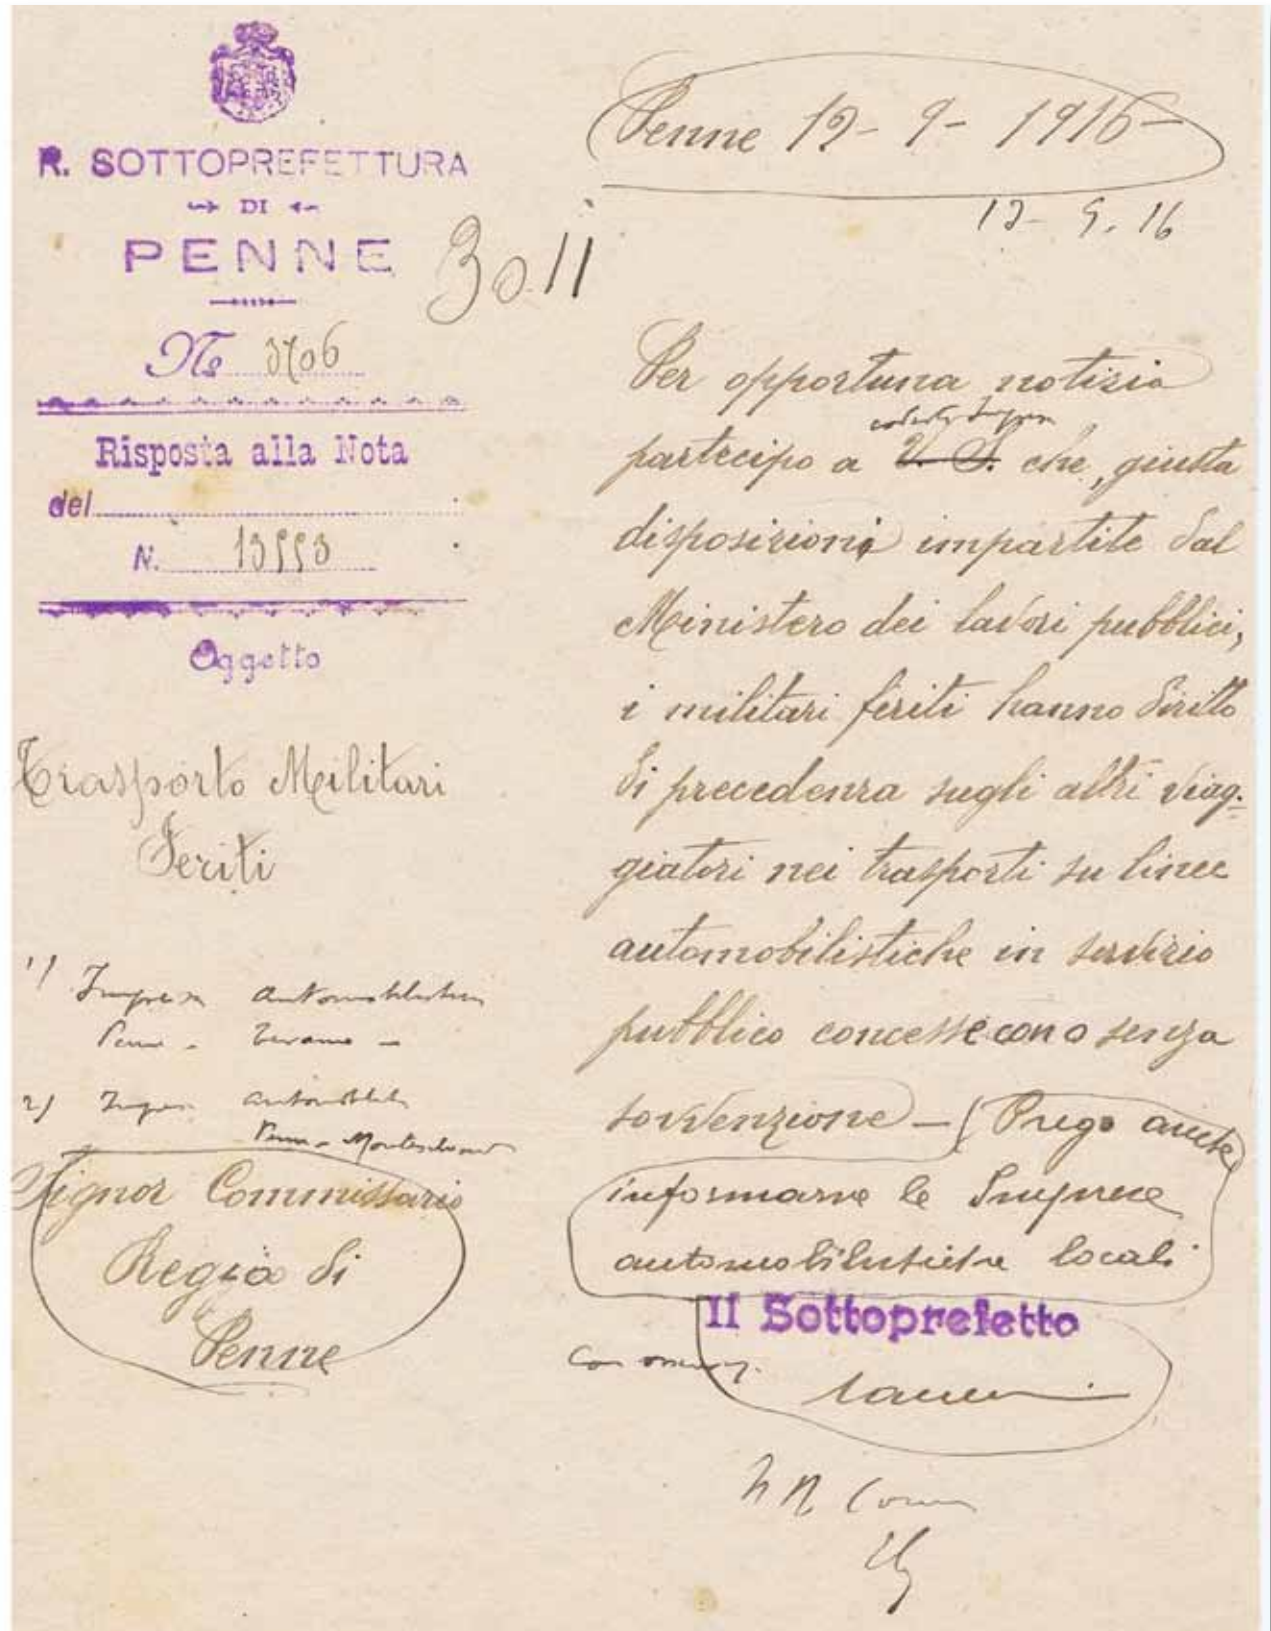 R. SOTTOPREFETTURA
DI
PENNE
3011
No 3706
Risposta alla Nota
del
N. 13553
Oggetto
Trasporto Militari
Feriti
1) Impresa Automobilistica
Penne - Teramo -
2) Impresa
Penne - Montesilvano
Signor Commissario
Regio di
Penne
Penne 12-9-1916
Per opportuna notizia
partecipo a V. S. che, giusta
disposizioni impartite dal
Ministero dei lavori pubblici,
i militari feriti hanno diritto
di precedenza sugli altri viag-
giatori nei trasporti su linee
automobilistiche in servizio
pubblico concesse con o senza
sovvenzione - Prego anche
informarne le Imprese
automobilistiche locali
Il Sottoprefetto